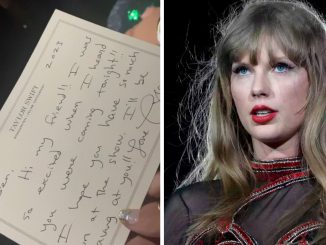 TAYLOR SWIFT
2025
Hi my friend!! I was
so excited when I heard
you were coming tonight!!
I hope you have so much
fun at the show. I'll be
at you!! Love